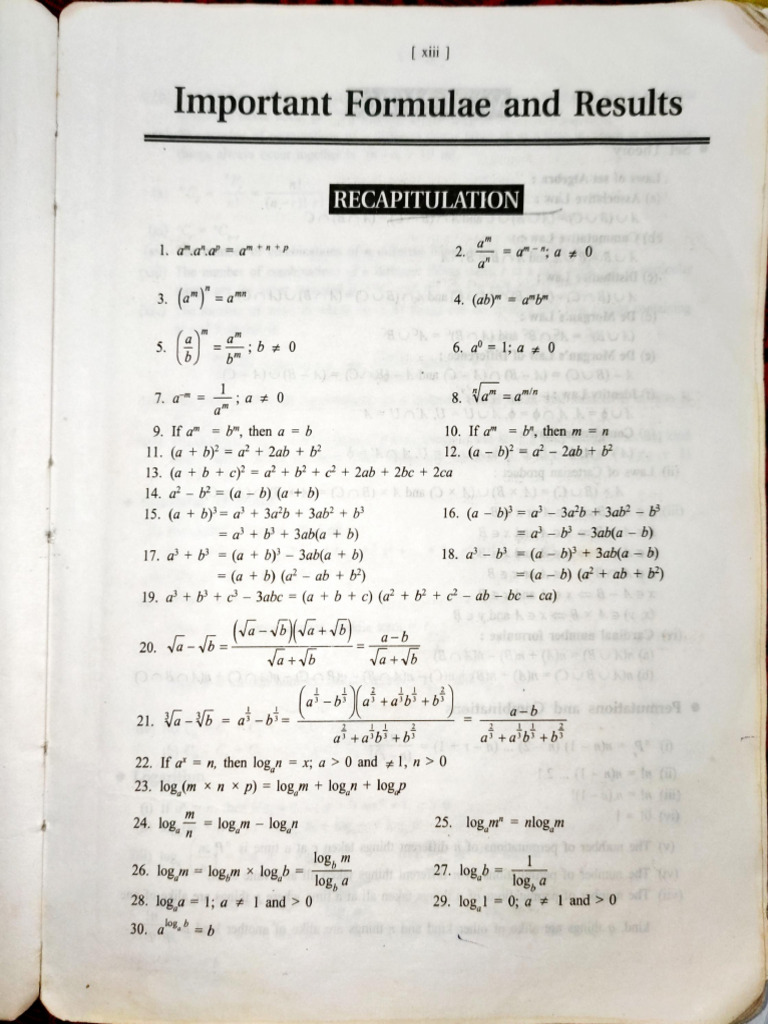 [ xiii ]
Important Formulae and Results
RECAPITULATION
1. aᵐ.aⁿ.aᵖ = aᵐ ⁺ ⁿ ⁺ ᵖ
2. aᵐ/aⁿ = aᵐ ⁻ ⁿ; a ≠ 0
3. (aᵐ)ⁿ = aᵐⁿ
4. (ab)ᵐ = aᵐbᵐ
5. (a/b)ᵐ = aᵐ/bᵐ ; b ≠ 0
6. a⁰ = 1; a ≠ 0
7. a⁻ᵐ = 1/aᵐ ; a ≠ 0
8. ⁿ√aᵐ = a^(m/n)
9. If aᵐ = bᵐ, then a = b
10. If aᵐ = bⁿ, then m = n
11. (a + b)² = a² + 2ab + b²
12. (a – b)² = a² – 2ab + b²
13. (a + b + c)² = a² + b² + c² + 2ab + 2bc + 2ca
14. a² – b² = (a – b) (a + b)
15. (a + b)³ = a³ + 3a²b + 3ab² + b³
= a³ + b³ + 3ab(a + b)
16. (a – b)³ = a³ – 3a²b + 3ab² – b³
= a³ – b³ – 3ab(a – b)
17. a³ + b³ = (a + b)³ – 3ab(a + b)
= (a + b) (a² – ab + b²)
18. a³ – b³ = (a – b)³ + 3ab(a – b)
= (a – b) (a² + ab + b²)
19. a³ + b³ + c³ – 3abc = (a + b + c) (a² + b² + c² – ab – bc – ca)
20. √a – √b = (√a – √b)(√a + √b)/(√a + √b) = (a – b)/(√a + √b)
21. ³√a – ³√b = a^(1/3) – b^(1/3) = (a^(1/3) – b^(1/3))(a^(2/3) + a^(1/3)b^(1/3) + b^(2/3))/(a^(2/3) + a^(1/3)b^(1/3) + b^(2/3)) = (a – b)/(a^(2/3) + a^(1/3)b^(1/3) + b^(2/3))
22. If aˣ = n, then logₐn = x; a > 0 and ≠ 1, n > 0
23. logₐ(m × n × p) = logₐm + logₐn + logₐp
24. logₐ m/n = logₐm – logₐn
25. logₐmⁿ = nlogₐm
26. logₐm = log_b m × logₐb = log_b m/log_b a
27. logₐb = 1/log_b a
28. logₐa = 1; a ≠ 1 and > 0
29. logₐ1 = 0; a ≠ 1 and > 0
30. a^(logₐ b) = b